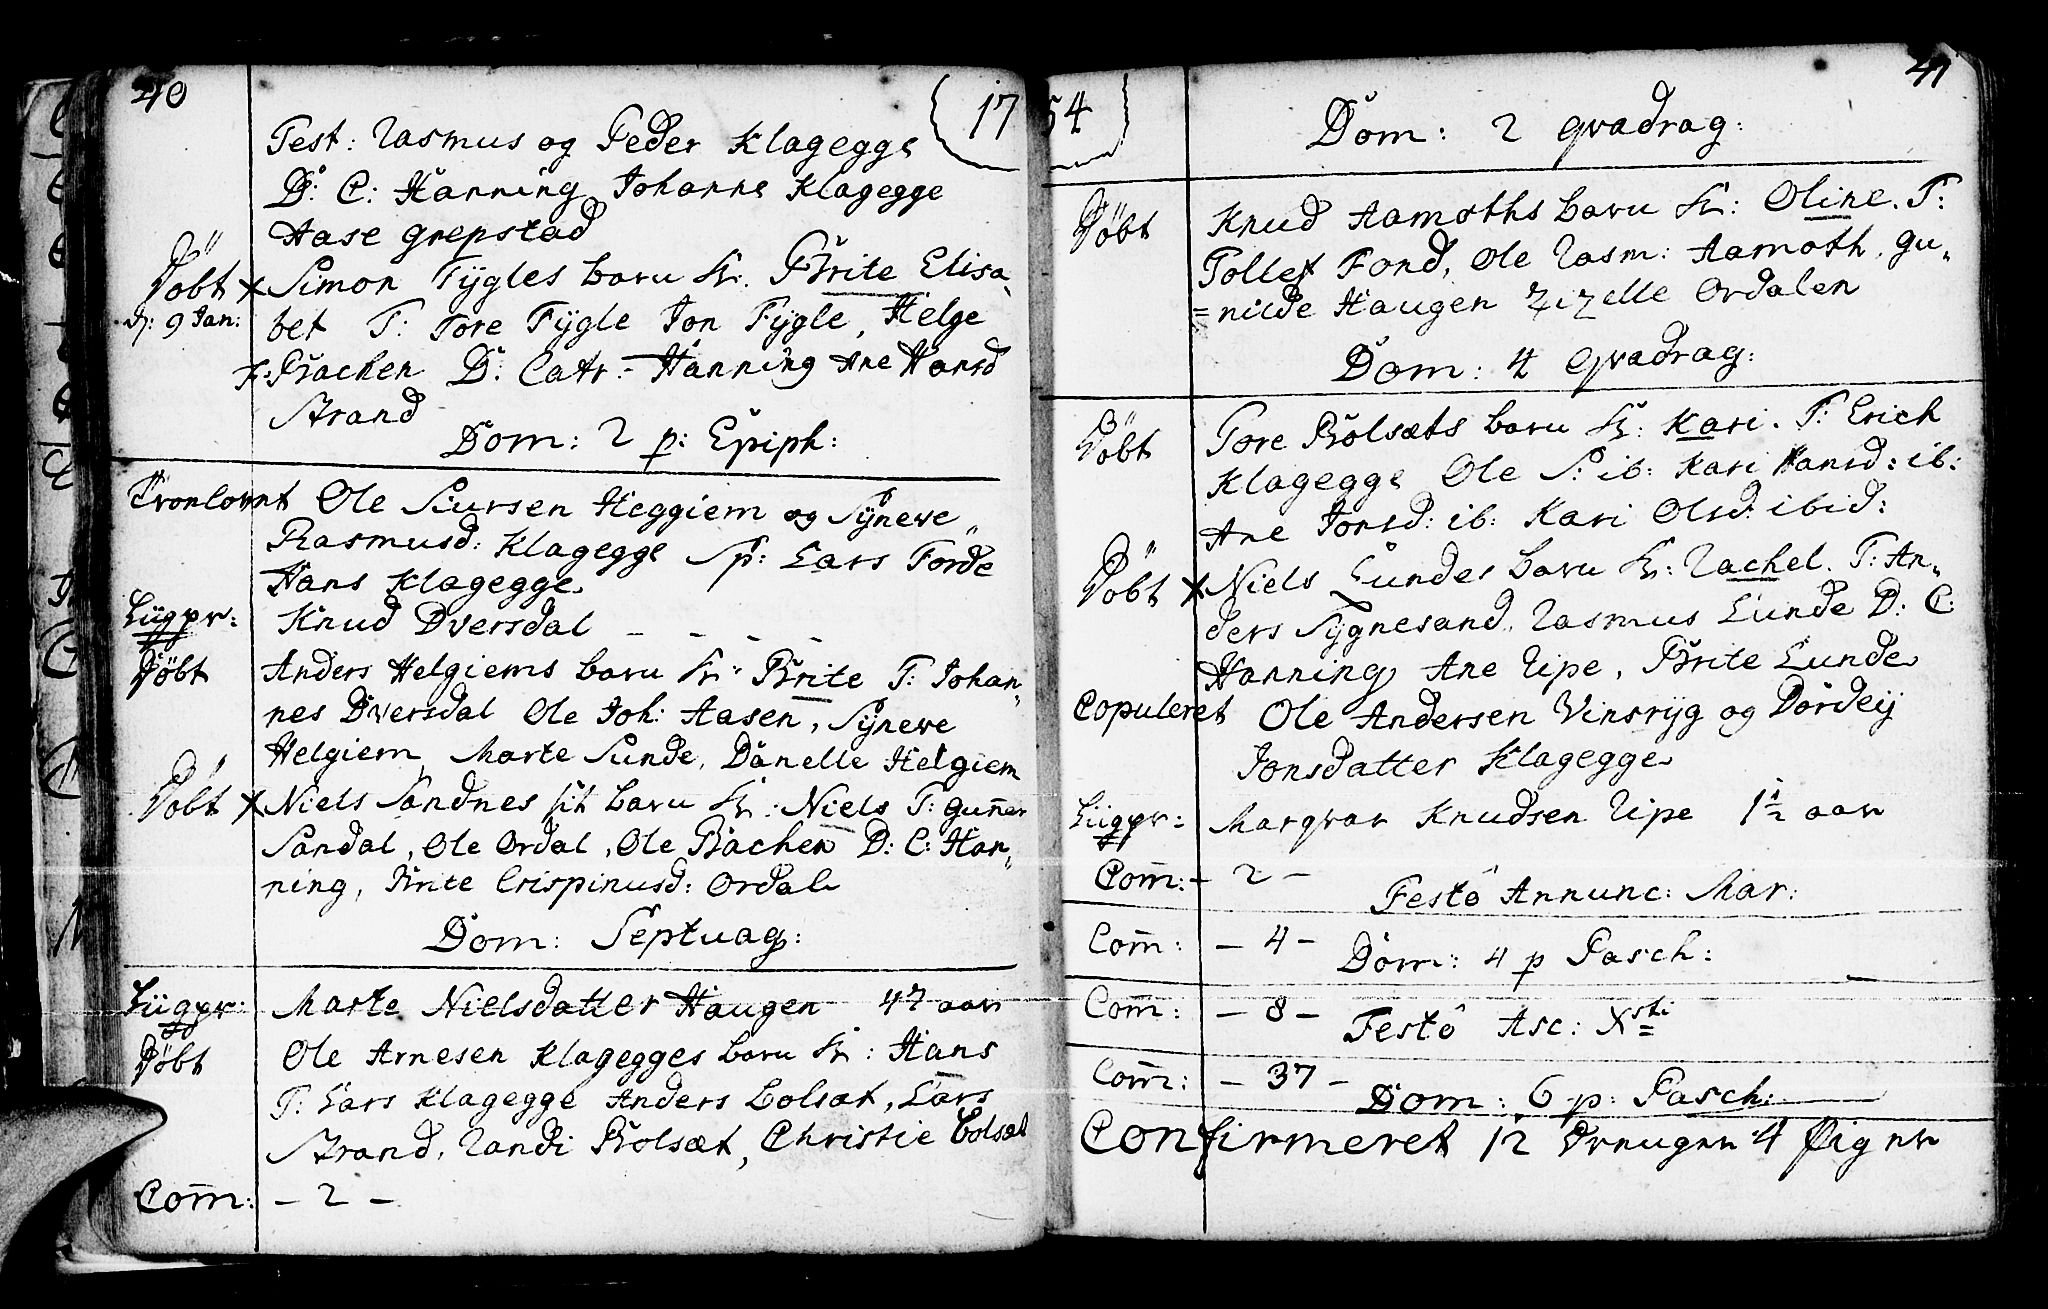 40
1754
Test: Rasmus og Peder Klagegge
D: C: Hanning Johanne Klagegge
Aase Grepstad
Døbt × Simon Tygles barn K: Brite Elisa„
d: 9 Jan: bet T: Tore Tygle Jon Tygle, Helge
Bachen D: Cathr: Hanning Ane Hansd
Strand
Dom: 2 p: Epiph:
Tronlovnt Ole Siursen Heggiem og Synewe
Rasmusd: Klagegge Sp: Lars Førde
Hans Klagegge
Liigpr: Knud Dversdal – – – –
Døbt Anders Helgiems barn K: Brite T: Johan„
nes Dversdal Ole Joh: Aasen, Synewe
Helgiem, Marte Sunde, Danelle Helgiem
Døbt × Niels Sandnes sit barn K: Niels T: Gun̄er
Sandal, Ole Ordal, Ole Bachen D: C: Han„
ning, Brite Crispinusd: Ordal
Dom: Septuag:
Liigpr: Marte Nielsdatter Haugen 47 aar
Døbt Ole Arnesen Klagegges barn K: Hans
T: Lars Klagegge Anders Bolsæt, Lars
Strand, Randi Bolsæt, Christie Bolsæt
Com̄: – 2 –
41
Dom: 2 Qvadrag:
Døbt Knud Aamoths barn K: Oline. T:
Tollef Fond, Ole Rasm: Aamoth, Gu„
=nilde Haugen Zizelle Ordalen
Dom: 4 Qvadrag:
Døbt Tore Bolsæts barn K: Kari. T: Erich
Klagegge Ole S: ib: Kari Hansd: ib:
Ane Jonsd: ib: Kari Olsd: ibid:
Døbt × Niels Lundes barn K: Rachel. T: An„
ders Sygnesand, Rasmus Lunde D: C:
Hanning Ane Ripe, Brite Lunde
Copuleret Ole Andersen Vinsryg og Dordeij
Jonsdatter Klagegge
Liigpr: Margvar Knudsen Ripe 1½ aar
Com̄: – 2 –
Festo Annunc: Mar:
Com̄: – 4 –
Dom: 4 p Pasch:
Com̄: – 8 –
Festo Asc: Xsti
Com̄: – 37 –
Dom: 6 p: Pasch:
Confirmeret 12 Drenger 4 Piger